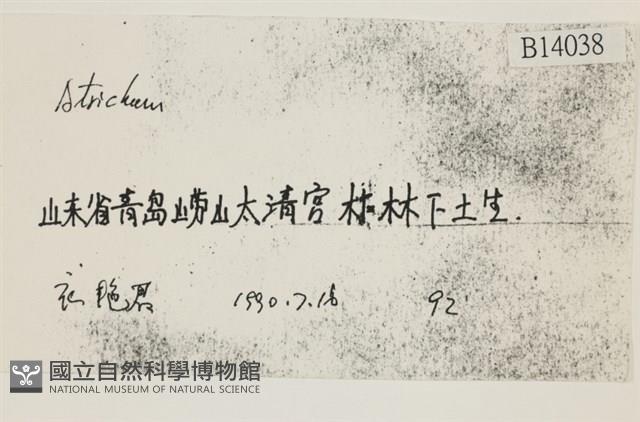 B14038
Atrichum
山东省青岛崂山太清宫 林下土生.
衣艳君 1990.7.16 92
國立自然科學博物館
NATIONAL MUSEUM OF NATURAL SCIENCE